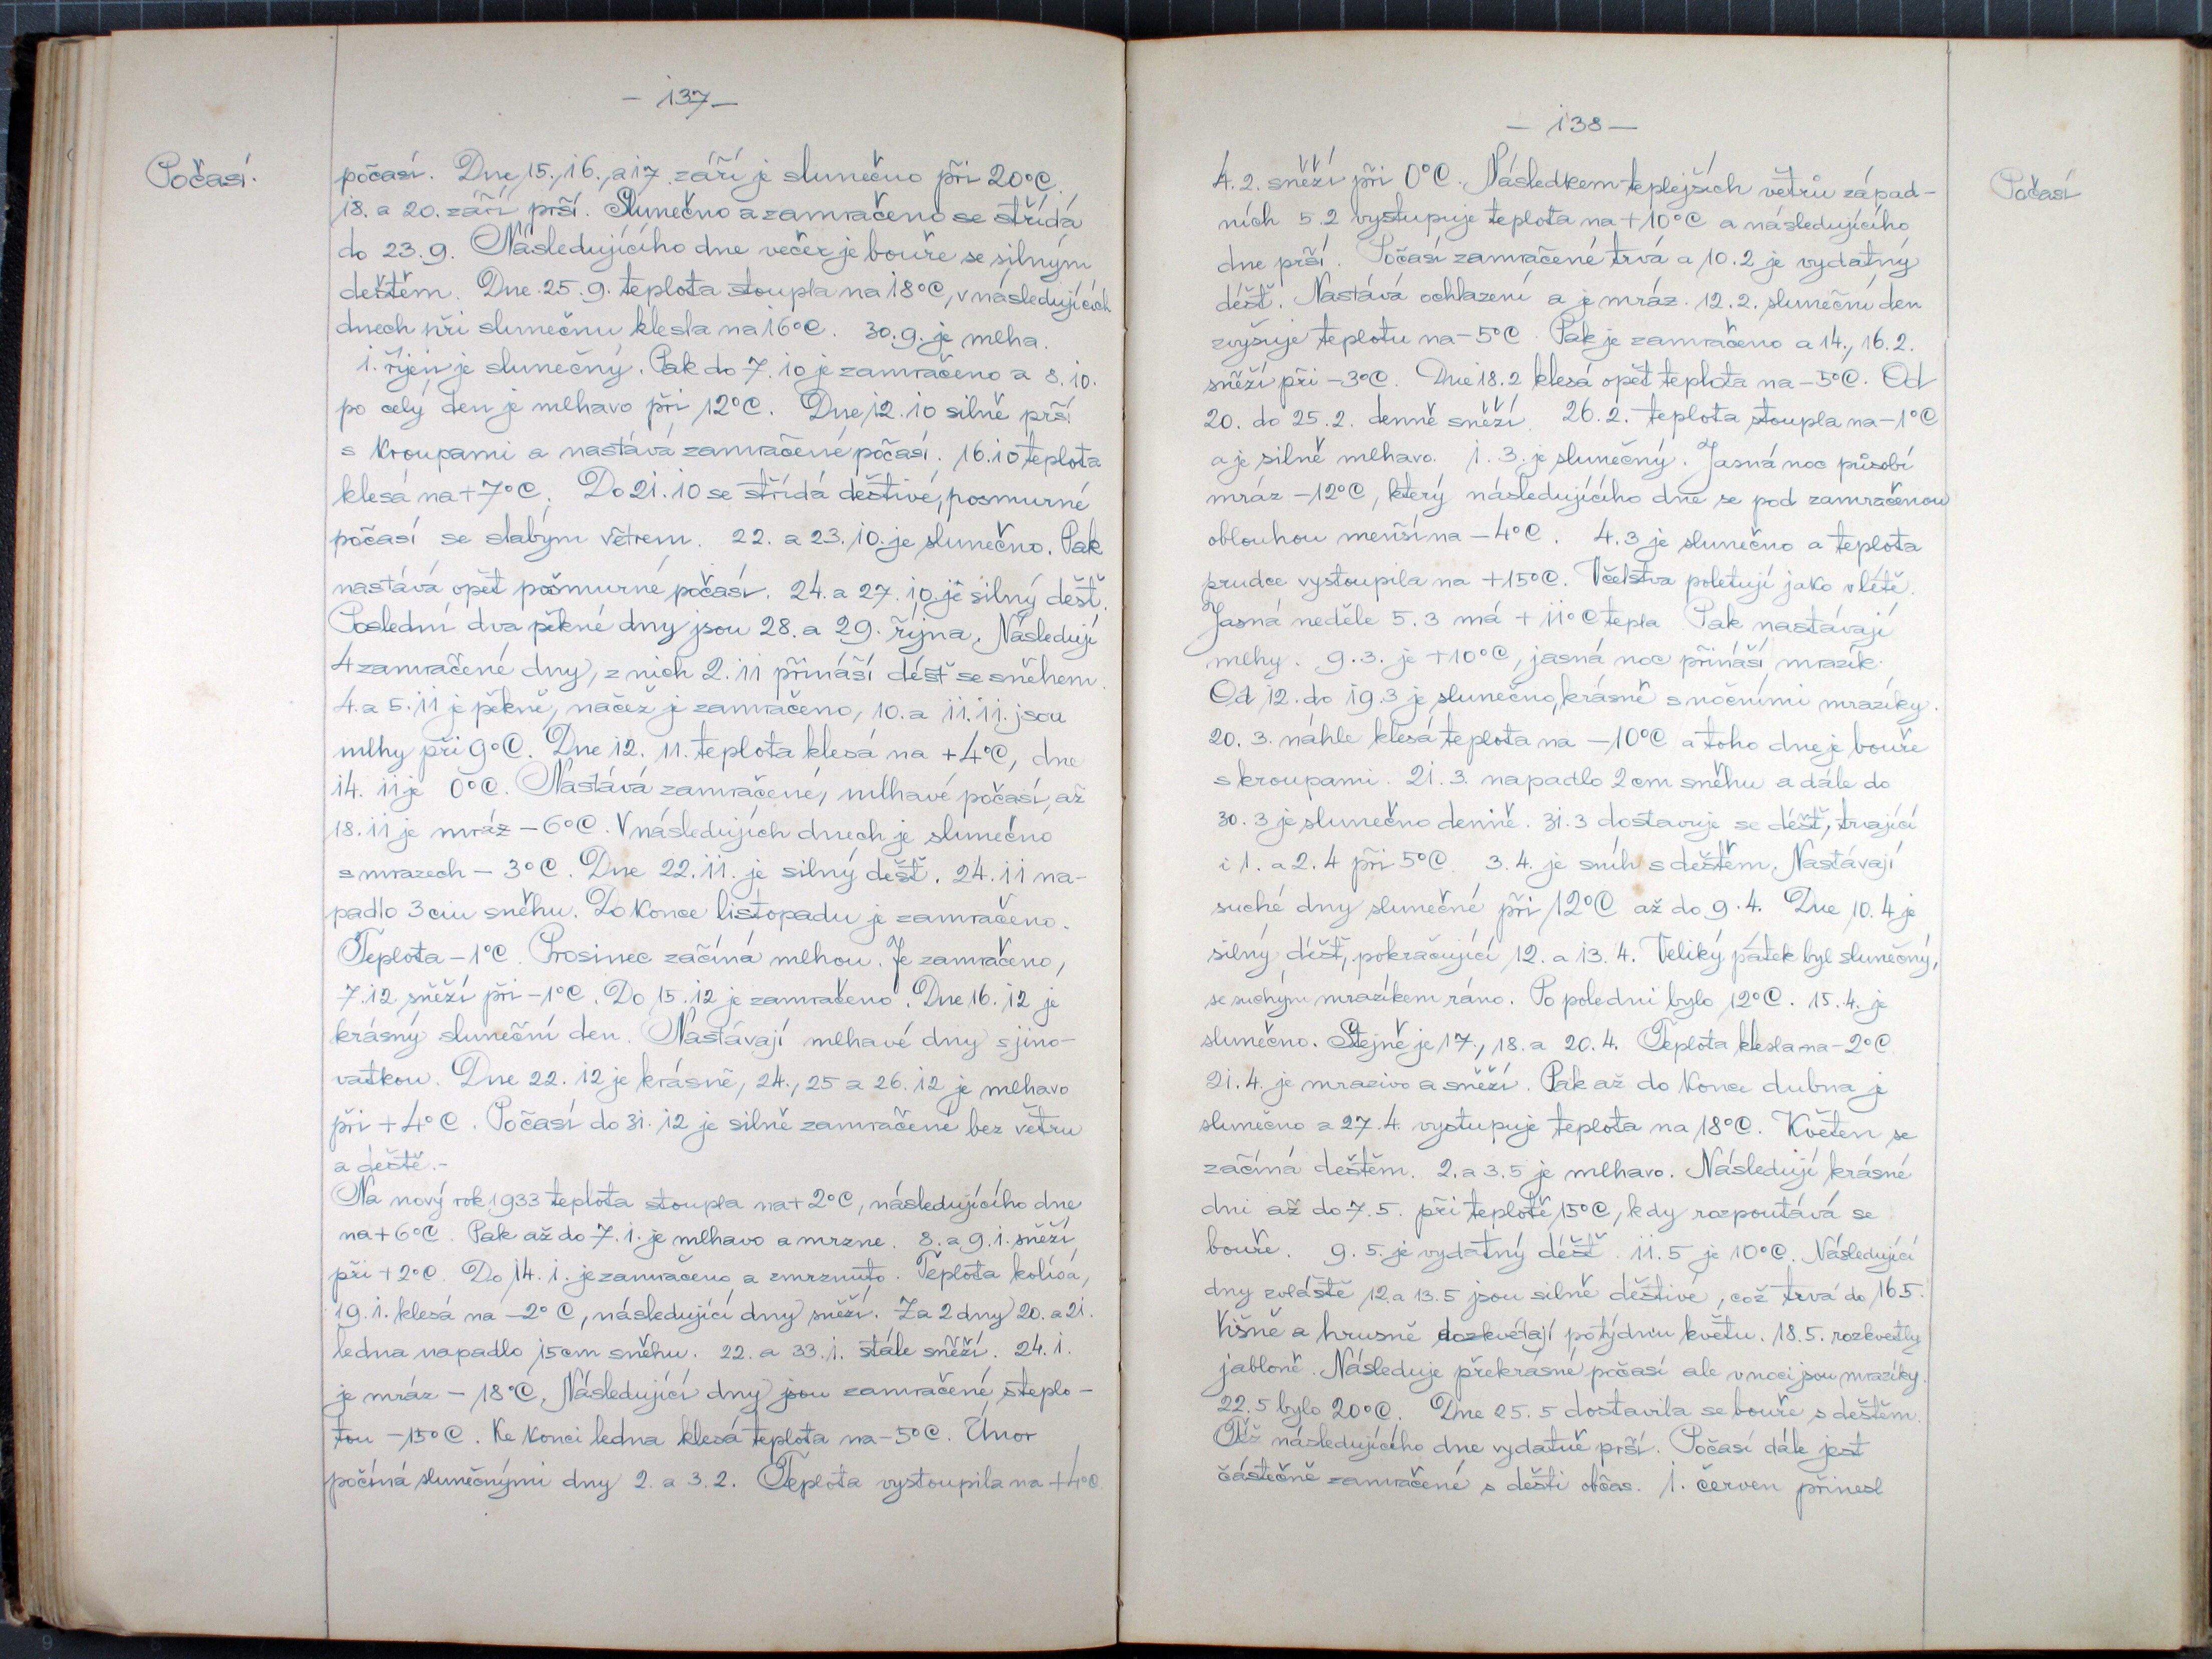 - 137 -
Počasí.
počasí. Dne 15., 16., a 17. září je slunečno při 20°C.
18. a 20. září prší. Slunečno a zamračeno se střídá
do 23. 9. Následujícího dne večer je bouře se silným
deštěm. Dne 25. 9. teplota stoupla na 18°C, v následujících
dnech při slunečnu klesla na 16°C. 30. 9. je mlha.
1. říjen je slunečný. Pak do 7. 10 je zamračeno a 8. 10.
po celý den je mlhavo při 12°C. Dne 12. 10 silně prší
s kroupami a nastává zamračené počasí. 16. 10 teplota
klesá na +7°C. Do 21. 10 se střídá deštivé, posmurné
počasí se slabým větrem. 22. a 23. 10. je slunečno. Pak
nastává opět pošmurné počasí. 24. a 27. 10. je silný déšť.
Poslední dva pěkné dny jsou 28. a 29. října. Následují
4 zamračené dny, z nich 2. 11 přináší déšť se sněhem.
4. a 5. 11 je pěkně, načež je zamračeno, 10. a 11. 11. jsou
mlhy při 9°C. Dne 12. 11. teplota klesá na +4°C, dne
14. 11 je 0°C. Nastává zamračené, mlhavé počasí, až
18. 11 je mráz -6°C. V následujích dnech je slunečno
s mrazech - 3°C. Dne 22. 11. je silný déšť. 24. 11 na-
padlo 3 cm sněhu. Do konce listopadu je zamračeno.
Teplota -1°C. Prosinec začíná mlhou. Je zamračeno,
7. 12 sněží při -1°C. Do 15. 12 je zamračeno. Dne 16. 12 je
krásný sluneční den. Nastávají mlhavé dny s jino-
vatkou. Dne 22. 12 je krásně, 24., 25 a 26. 12 je mlhavo
při +4°C. Počasí do 31. 12 je silně zamračené bez větru
a deště.-
Na nový rok 1933 teplota stoupla na +2°C, následujícího dne
na +6°C. Pak až do 7. 1. je mlhavo a mrzne. 8. a 9. 1. sněží
při +2°C. Do 14. 1. je zamračeno a zmrznuto. Teplota kolísá,
19. 1. klesá na -2°C, následující dny sněží. Za 2 dny 20. a 21.
ledna napadlo 15 cm sněhu. 22. a 33. 1. stále sněží. 24. 1.
je mráz - 18°C. Následující dny jsou zamračené s teplo-
tou -15°C. Ke konci ledna klesá teplota na -5°C. Únor
počíná slunečnými dny 2. a 3. 2. Teplota vystoupila na +4°C.
- 138 -
Počasí
4. 2. sněží při 0°C. Následkem teplejších větrů západ-
ních 5. 2 vystupuje teplota na +10°C a následujícího
dne prší. Počasí zamračené trvá a 10. 2 je vydatný
déšť. Nastává ochlazení a je mráz. 12. 2. sluneční den
zvyšuje teplotu na -5°C. Pak je zamračeno a 14., 16. 2.
sněží při -3°C. Dne 18. 2 klesá opět teplota na -5°C. Od
20. do 25. 2. denně sněží. 26. 2. teplota stoupla na -1°C
a je silně mlhavo. 1. 3. je slunečný. Jasná noc působí
mráz -12°C, který následujícího dne se pod zamračenou
oblouhou menší na -4°C. 4. 3 je slunečno a teplota
prudce vystoupila na +15°C. Včelstva poletují jako v létě.
Jasná neděle 5. 3 má +11°C tepla. Pak nastávají
mlhy. 9. 3. je +10°C, jasná noc přináší mrazík.
Od 12. do 19. 3 je slunečno, krásně s nočními mrazíky.
20. 3. náhle klesá teplota na -10°C a toho dne je bouře
s kroupami. 21. 3. napadlo 2 cm sněhu a dále do
30. 3 je slunečno denně. 31. 3 dostavuje se déšť, trvající
i 1. a 2. 4 při 5°C. 3. 4. je sníh s deštěm. Nastávají
suché dny slunečné při 12°C až do 9. 4. Dne 10. 4 je
silný déšť, pokračující 12. a 13. 4. Veliký pátek byl slunečný,
se suchým mrazíkem ráno. Po poledni bylo 12°C. 15. 4. je
slunečno. Stejně je 17., 18. a 20. 4. Teplota klesla na -2°C.
21. 4. je mrazivo a sněží. Pak až do konce dubna je
slunečno a 27. 4. vystupuje teplota na 18°C. Květen se
začíná deštěm. 2. a 3. 5 je mlhavo. Následují krásné
dni až do 7. 5. při teplotě 15°C, kdy rozpoutává se
bouře. 9. 5. je vydatný déšť. 11. 5 je 10°C. Následující
dny zvláště 12. a 13. 5 jsou silně deštivé, což trvá do 16 5.
Višně a hrušně dozkvétají po týdnu květu. 18. 5. rozkvetly
jabloně. Následuje překrásné počasí ale v noci jsou mrazíky.
22. 5 bylo 20°C. Dne 25. 5 dostavila se bouře s deštěm.
Též následujícího dne vydatně prší. Počasí dále jest
částečně zamračené s dešti občas. 1. červen přinesl